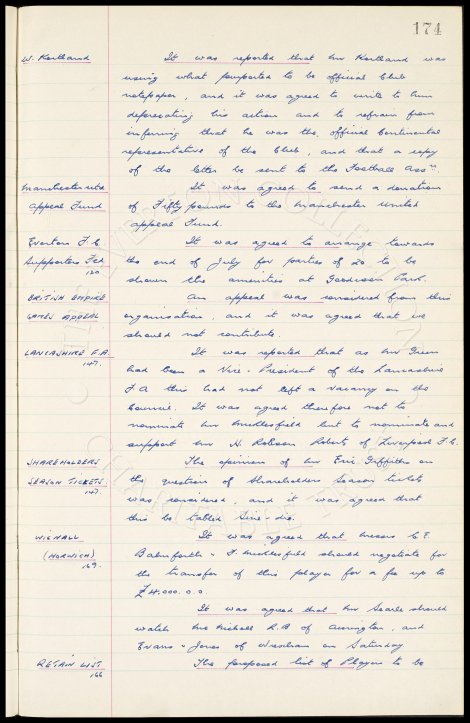 174
W. Kertland It was reported that Mr Kertland was
using what purported to be official Club
notepaper, and it was agreed to write to him
deprecating his action and to refrain from
inferring that he was the official Continental
representative of the Club, and that a copy
of the letter be sent to the Football Assn.
Manchester Utd It was agreed to send a donation
Appeal Fund of Fifty pounds to the Manchester United
appeal Fund.
Everton F.C. It was agreed to arrange towards
Supporters Fed the end of July for parties of 20 to be
120 shown the amenities at Goodison Park.
BRITISH EMPIRE An appeal was considered from this
GAMES APPEAL organisation, and it was agreed that we
should not contribute.
LANCASHIRE F.A. It was reported that as Mr Green
147. had been a Vice-President of the Lancashire
F A this had not left a vacancy on the
Council. It was agreed therefore not to
nominate Mr Micklesfield but to nominate and
support Mr H. Robson Roberts of Liverpool F.C.
SHAREHOLDERS The opinion of Mr Eric Griffiths on
SEASON TICKETS the question of Shareholders Season tickets
147. was considered, and it was agreed that
this be tabled Sine-die.
WIGNALL It was agreed that Messrs C.E.
(NORWICH) Balmforth & F. Micklesfield should negotiate for
169. the transfer of this player for a fee up to
£4,000. 0. 0
It was agreed that Mr Searle should
watch McNichol R.B of Accrington, and
Evans & Jones of Wrexham on Saturday
RETAIN LIST The proposed list of Players to be
166